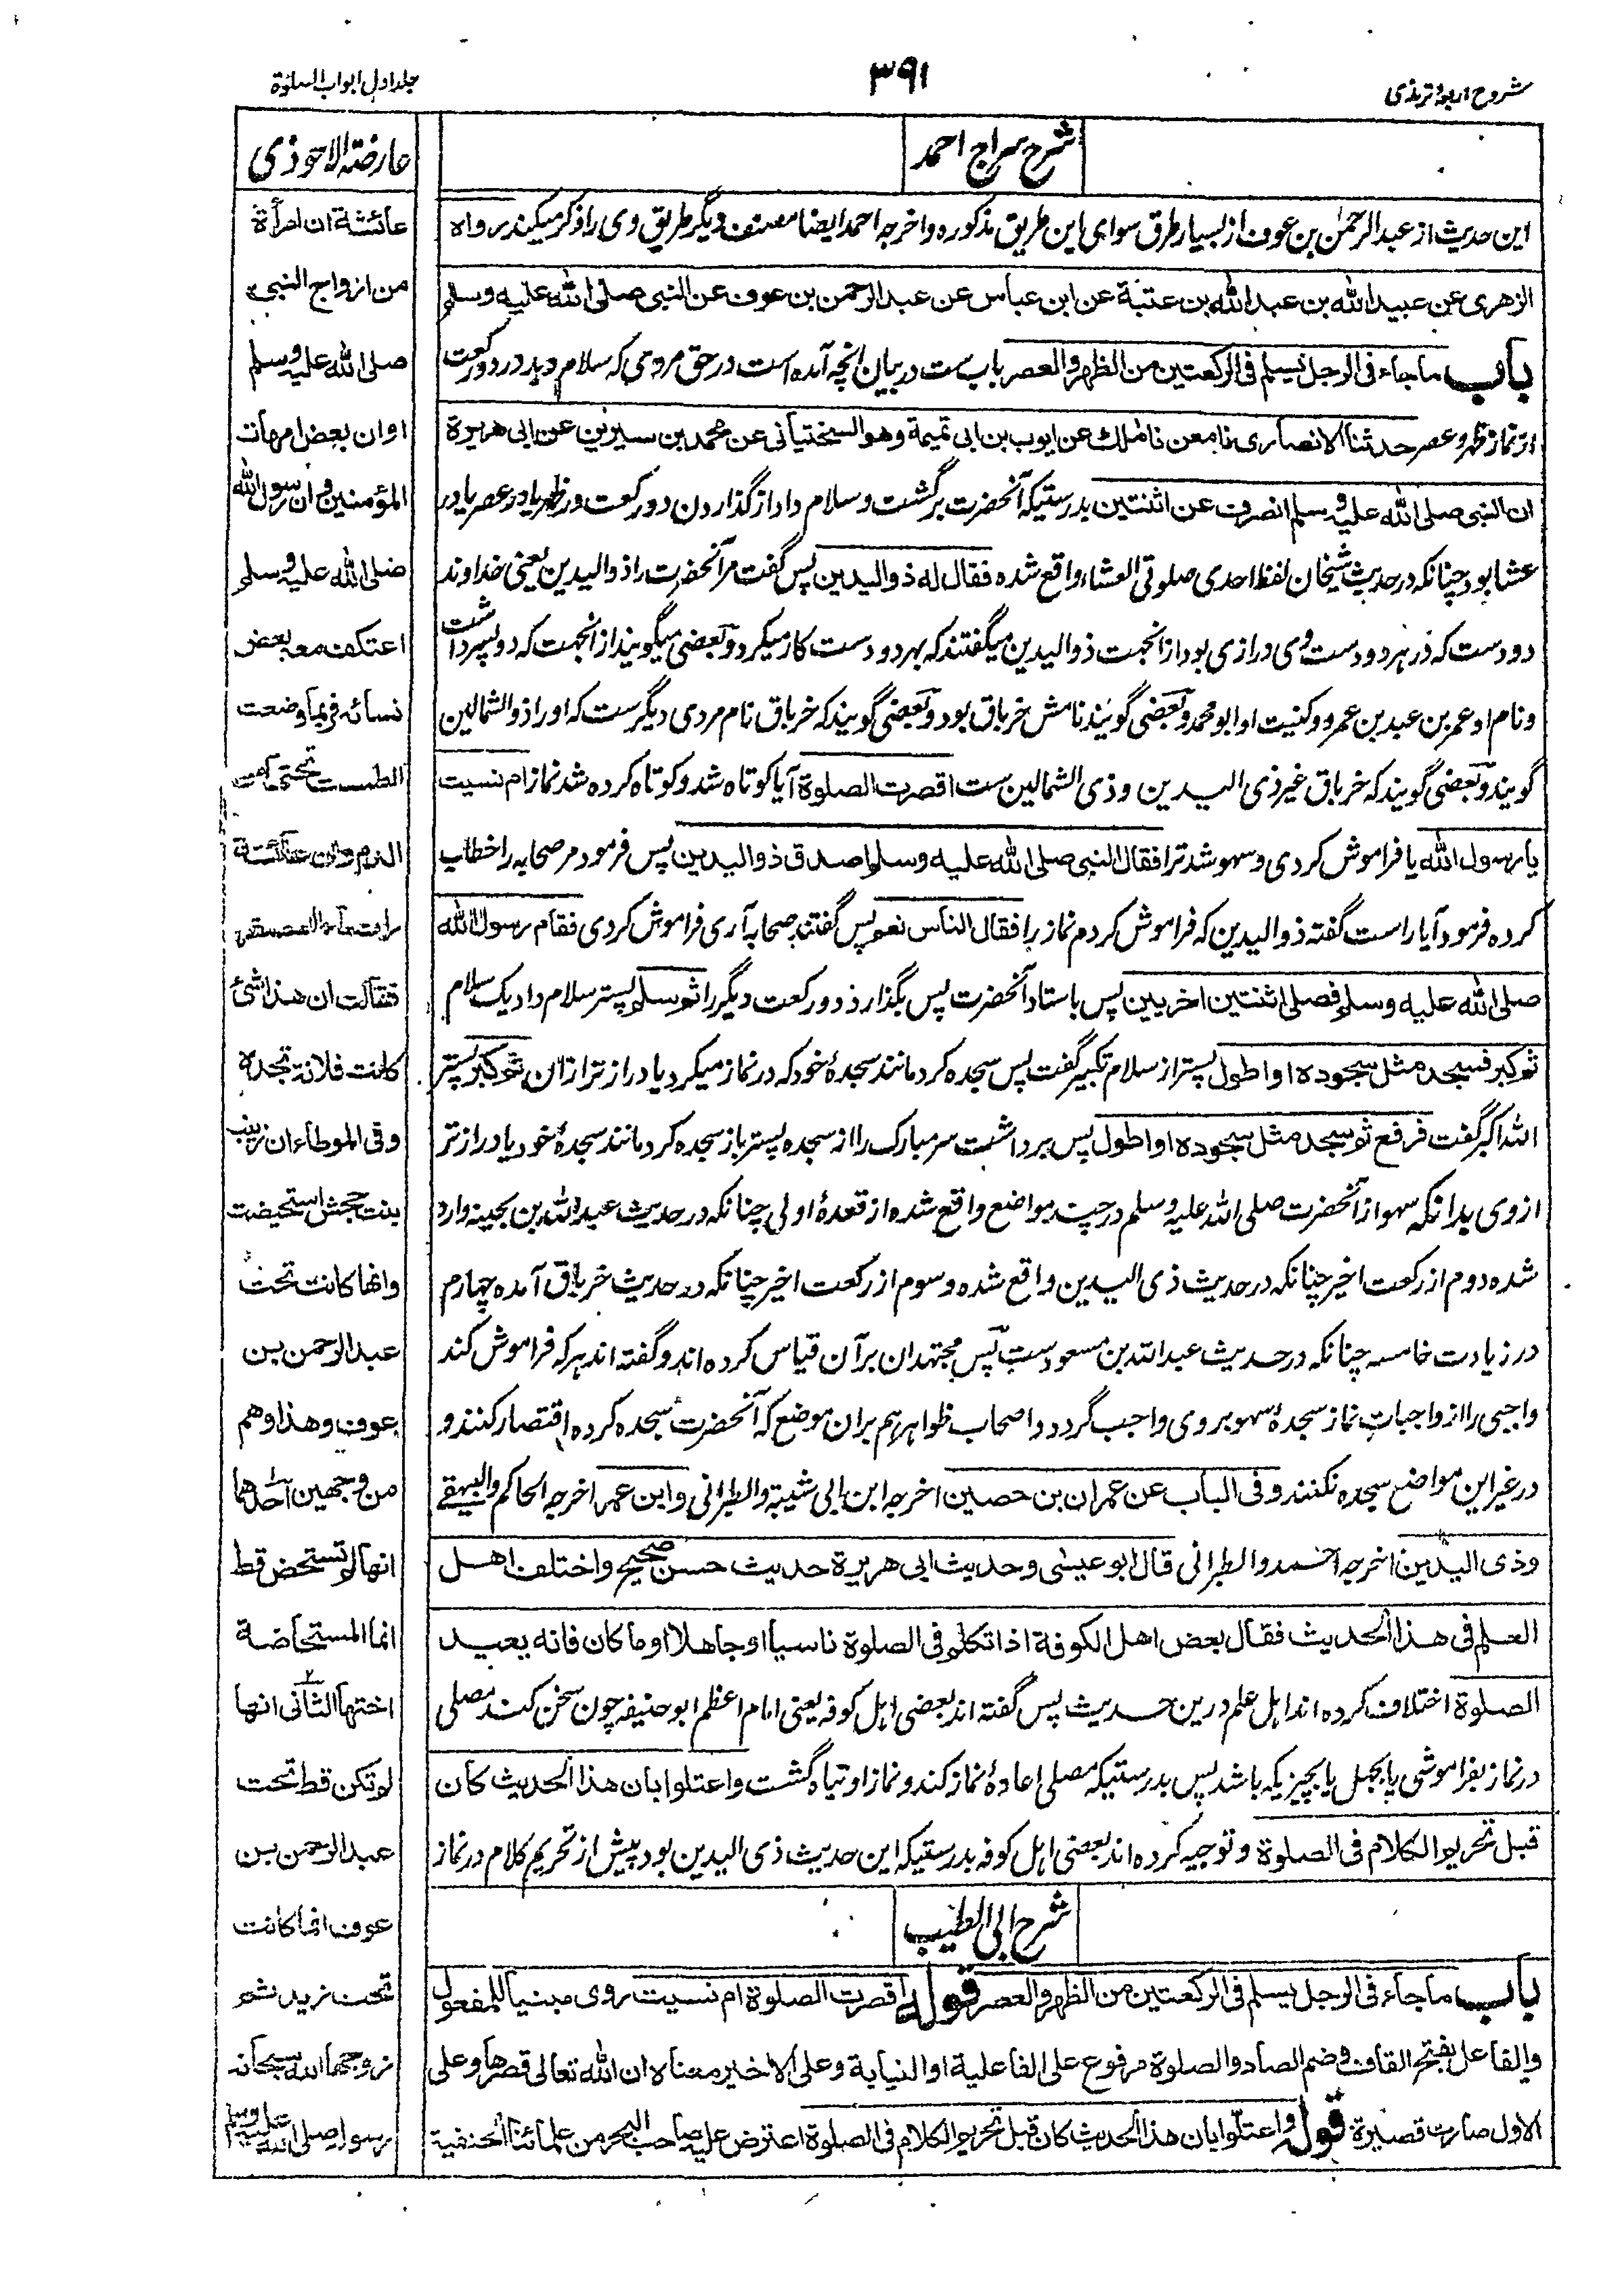 شروح اربعهٔ ترمذی
۳۹۱
جلد اول ابواب الصلوٰة
شرح سراج احمد
این حدیث از عبد الرحمٰن بن عوف از بسیار طرق سوای این طریق مذکوره و اخرجه احمد ایضا مصنف دیگر طریق وی را ذکر میکند رواه
الزهری عن عبید الله بن عبد الله بن عتبة عن ابن عباس عن عبد الرحمن بن عوف عن النبی صلی الله علیه وسلم
باب ما جاء فی الرجل یسلم فی الرکعتین من الظهر والعصر باب ست در بیان انچه آمده است در حق مردی که سلام دهد در دو رکعت
از نماز ظهر و عصر حدثنا الانصاری نا معن نا مٰلک عن ایوب بن ابی تمیمة وهو السختیانی عن محمد بن سیرین عن ابی هریرة
ان النبی صلی الله علیه وسلم انصرف عن اثنتین بدرستیکه آنحضرت برگشت و سلام داد از گذاردن دو رکعت در ظهر یا در عصر یا در
عشا بود چنانکه در حدیث شیخان لفظ احدی صلوتی العشاء واقع شده فقال له ذو الیدین پس گفت مر آنحضرت را ذو الیدین یعنی خداوند
دو دست که در هر دو دست وی درازی بود از انجهت ذو الیدین میگفتند که بهر دو دست کار میکرد و بعضی میگویند از انجهت که دو پسر داشت
و نام او عمر بن عبد بن عمرو و کنیت او ابو محمد و بعضی گویند نامش خرباق بود و بعضی گویند که خرباق نام مردی دیگر ست که او را ذو الشمالین
گویند و بعضی گویند که خرباق غیر ذی الیدین و ذی الشمالین ست اقصرت الصلوة آیا کوتاه شد و کوتاه کرده شد نماز ام نسیت
یا رسول الله یا فراموش کردی و سهو شد ترا فقال النبی صلی الله علیه وسلم اصدق ذو الیدین پس فرمود مر صحابه را خطاب
کرده فرمود آیا راست گفته ذو الیدین که فراموش کردم نماز را فقال الناس نعم پس گفتند صحابه آری فراموش کردی فقام رسول الله
صلی الله علیه وسلم فصلی اثنتین اخریین پس باستاد آنحضرت پس بگذارد دو رکعت دیگر را ثم سلم پستر سلام داد یک سلام
ثم کبر فسجد مثل سجوده او اطول پستر از سلام تکبیر گفت پس سجده کرد مانند سجدهٔ خود که در نماز میکرد یا درازتر ازان ثم کبر پستر
الله اکبر گفت فرفع ثم سجد مثل سجوده او اطول پس برداشت سر مبارک را از سجده پستر باز سجده کرد مانند سجدهٔ خود یا درازتر
از وی بدانکه سهو از آنحضرت صلی الله علیه وسلم در چند مواضع واقع شده از قعدهٔ اولی چنانکه در حدیث عبد الله بن بحینه وارد
شده دوم از رکعت اخیر چنانکه در حدیث ذی الیدین واقع شده و سوم از رکعت اخیر چنانکه در حدیث خرباق آمده چهارم
در زیادت خامسه چنانکه در حدیث عبد الله بن مسعود ست پس مجتهدان بر آن قیاس کرده اند و گفته اند هر که فراموش کند
واجبی را از واجبات نماز سجدهٔ سهو بر وی واجب گردد و اصحاب ظواهر هم بران موضع که آنحضرت سجده کرده اقتصار کنند و
در غیر این مواضع سجده نکنند و فی الباب عن عمران بن حصین اخرجه ابن ابی شیبة والطبرانی وابن عمر اخرجه الحاکم والبیهقی
وذی الیدین اخرجه احمد والطبرانی قال ابو عیسی وحدیث ابی هریرة حدیث حسن صحیح واختلف اهل
العلم فی هذا الحدیث فقال بعض اهل الکوفة اذا تکلم فی الصلوة ناسیا او جاهلا او ما کان فانه یعید
الصلوة اختلاف کرده اند اهل علم درین حدیث پس گفته اند بعضی اهل کوفه یعنی امام اعظم ابو حنیفه چون سخن کند مصلی
در نماز بفراموشی یا بجهل یا بچیزیکه باشد پس بدرستیکه مصلی اعادهٔ نماز کند و نماز او تباه گشت واعتلوا بان هذا الحدیث کان
قبل تحریم الکلام فی الصلوة و توجیه کرده اند بعضی اهل کوفه بدرستیکه این حدیث ذی الیدین بود پیش از تحریم کلام در نماز
شرح ابی الطیب
باب ما جاء فی الرجل یسلم فی الرکعتین من الظهر والعصر قوله اقصرت الصلوة ام نسیت روی مبنیا للمفعول
والفاعل بفتح القاف وضم الصاد والصلوة مرفوع علی الفاعلیة او النیابة وعلی الاخیر معناه ان الله تعالی قصرها وعلی
الاول صارت قصیرة قوله واعتلوا بان هذا الحدیث کان قبل تحریم الکلام فی الصلوة اعترض علیه صاحب البحر من علمائنا الحنفیة
عارضة الاحوذی
عائشة ان امرأة
من ازواج النبی
صلی الله علیه وسلم
او ان بعض امهات
المؤمنین و ان رسول الله
صلی الله علیه وسلم
اعتکف معه بعض
نسائه فربما وضعت
الطست تحتی من
الدم وان عائشة
رات ماء العصفر
فقالت ان هذا شئ
کانت فلانة تجده
وفی الموطاء ان زینب
بنت جحش استحیضت
وانها کانت تحت
عبد الرحمن بن
عوف وهذا وهم
من وجهین احدهما
انها لم تستحض قط
انما المستحاضة
اختها الثانی انها
لم تکن قط تحت
عبد الرحمن بن
عوف انما کانت
تحت زید ثم
زوجها الله سبحانه
رسوله صلی الله علیه وسلم